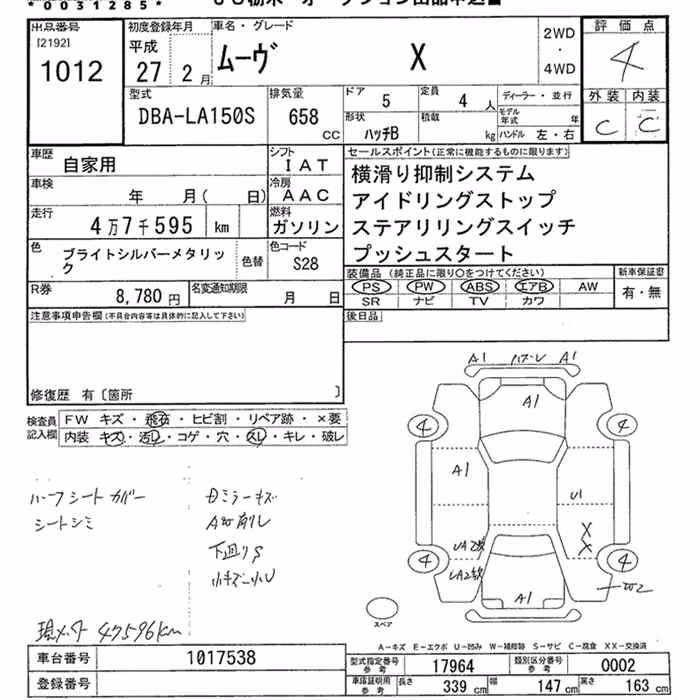 *0031285*
出品番号
[2192]
1012
初度登録年月
平成
27年 2月
車名・グレード
ムーヴ X
2WD
・
4WD
評価点
4
外装 内装
C C
型式
DBA-LA150S
排気量
658 CC
ドア 5
定員 4人
ディーラー・並行
形状 ハッチB
積載 kg
モデル年式 年
ハンドル 左・右
車歴 自家用
シフト IAT
車検 年 月( 日)
冷房 AAC
走行 4万7千595 km
燃料 ガソリン
色 ブライトシルバーメタリック
色替
色コード S28
R券 8,780円
名変通知期限 月 日
セールスポイント(正常に機能するものに限ります)
横滑り抑制システム
アイドリングストップ
ステアリリングスイッチ
プッシュスタート
装備品(純正品に限り○をつけてください)
PS PW ABS エアB AW
SR ナビ TV カワ
新車保証書
有・無
注意事項申告欄(不具合内容等は具体的に記入して下さい)
後日品
修復歴 有〔箇所 〕
検査員記入欄
FW キズ・飛石・ヒビ割・リペア跡・×要
内装 キズ・汚レ・コゲ・穴・スレ・キレ・破レ
ハーフシートカバー
シートシミ
下廻りS
小キズ小U
現メータ 47596km
A1 A1
A1
4 4
A1
U1
X
X
4 4
A1
スペア
A-キズ E-エクボ U-凹み W-補修跡 S-サビ C-腐食 XX-交換済
車台番号 1017538
登録番号
型式指定番号 参考 17964
類別区分番号 参考 0002
車庫証明用 参考 長さ 339 cm 幅 147 cm 高さ 163 cm